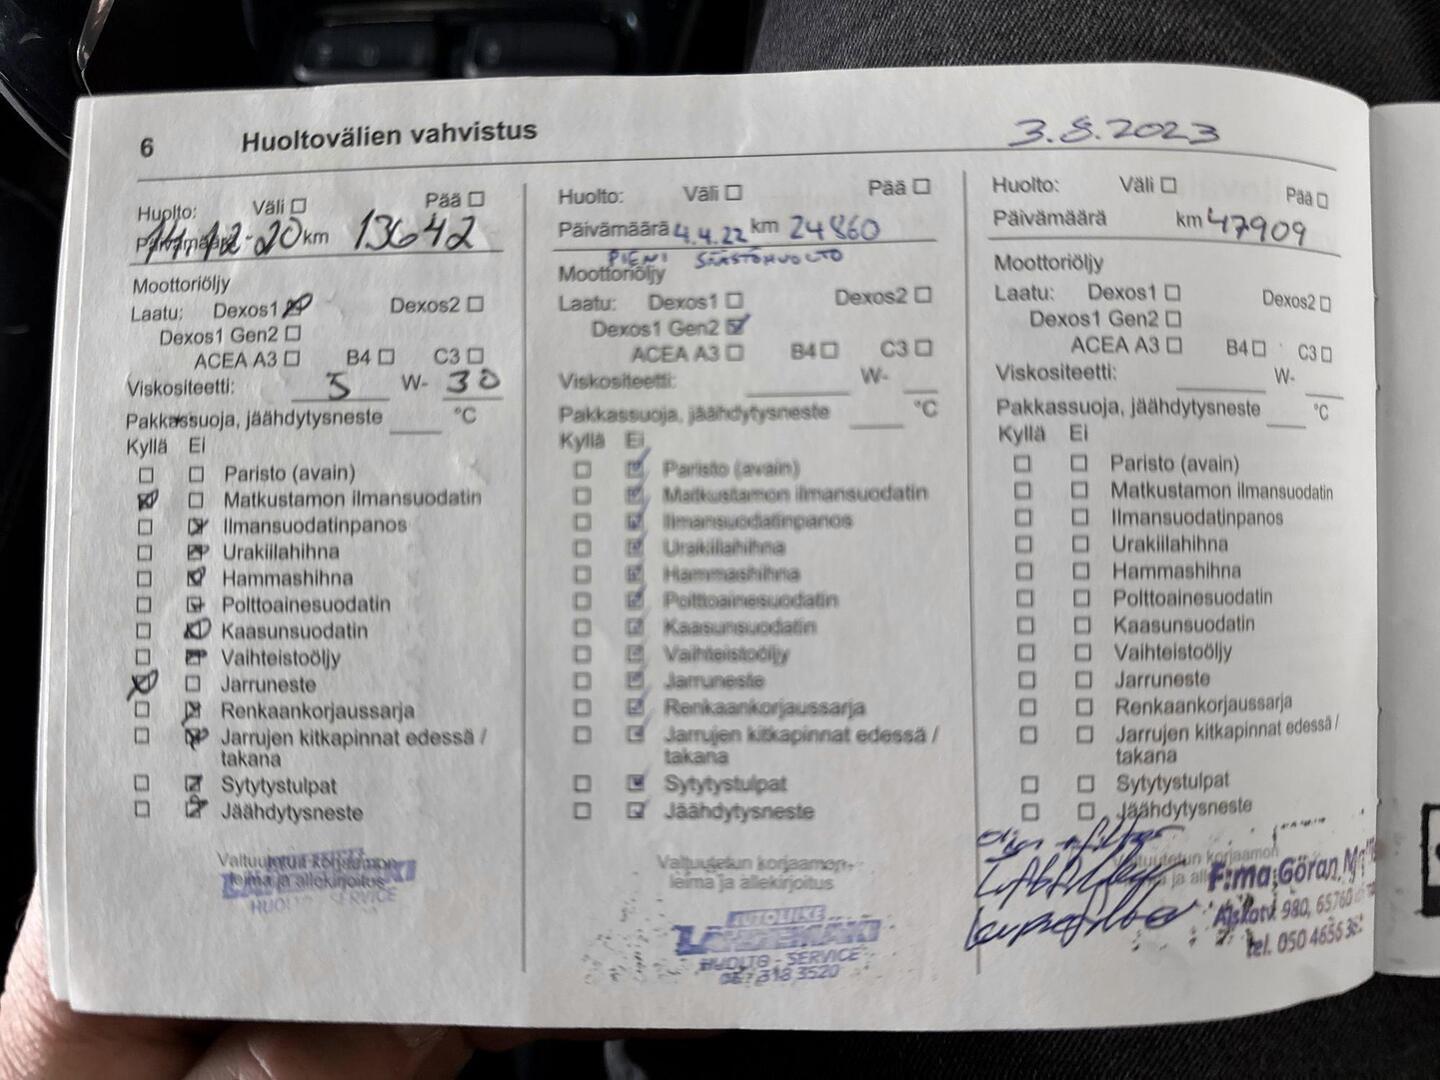 6 Huoltovälien vahvistus 3.8.2023
Huolto: Väli Pää
Päivämäärä 14.12-20 km 13642
Moottoriöljy
Laatu: Dexos1 Dexos2
Dexos1 Gen2
ACEA A3 B4 C3
Viskositeetti: 5 W- 30
Pakkassuoja, jäähdytysneste °C
Kyllä Ei
Paristo (avain)
Matkustamon ilmansuodatin
Ilmansuodatinpanos
Urakiilahihna
Hammashihna
Polttoainesuodatin
Kaasunsuodatin
Vaihteistoöljy
Jarruneste
Renkaankorjaussarja
Jarrujen kitkapinnat edessä /
takana
Sytytystulpat
Jäähdytysneste
Valtuutetun korjaamon
leima ja allekirjoitus
HUOLTO SERVICE
Huolto: Väli Pää
Päivämäärä 4.4.22 km 24860
PIENI SÄÄSTÖHUOLTO
Moottoriöljy
Laatu: Dexos1 Dexos2
Dexos1 Gen2
ACEA A3 B4 C3
Viskositeetti: W-
Pakkassuoja, jäähdytysneste °C
Kyllä Ei
Paristo (avain)
Matkustamon ilmansuodatin
Ilmansuodatinpanos
Urakiilahihna
Hammashihna
Polttoainesuodatin
Kaasunsuodatin
Vaihteistoöljy
Jarruneste
Renkaankorjaussarja
Jarrujen kitkapinnat edessä /
takana
Sytytystulpat
Jäähdytysneste
Valtuutetun korjaamon
leima ja allekirjoitus
AUTOLIIKE
LÄHDEMÄKI
HUOLTO - SERVICE
318 3520
Huolto: Väli Pää
Päivämäärä km 47909
Moottoriöljy
Laatu: Dexos1 Dexos2
Dexos1 Gen2
ACEA A3 B4 C3
Viskositeetti: W-
Pakkassuoja, jäähdytysneste °C
Kyllä Ei
Paristo (avain)
Matkustamon ilmansuodatin
Ilmansuodatinpanos
Urakiilahihna
Hammashihna
Polttoainesuodatin
Kaasunsuodatin
Vaihteistoöljy
Jarruneste
Renkaankorjaussarja
Jarrujen kitkapinnat edessä /
takana
Sytytystulpat
Jäähdytysneste
Valtuutetun korjaamon
F:ma Göran
980, 65760
tel. 050 4656